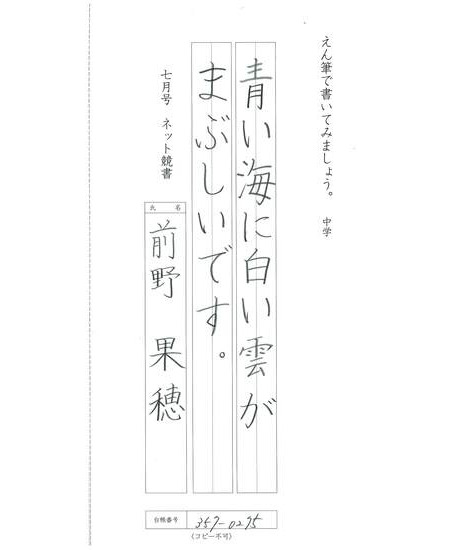 えん筆で書いてみましょう。 中学
青い海に白い雲が
まぶしいです。
七月号 ネット競書
氏名
前野 果穂
台帳番号 357-0275
(コピー不可)